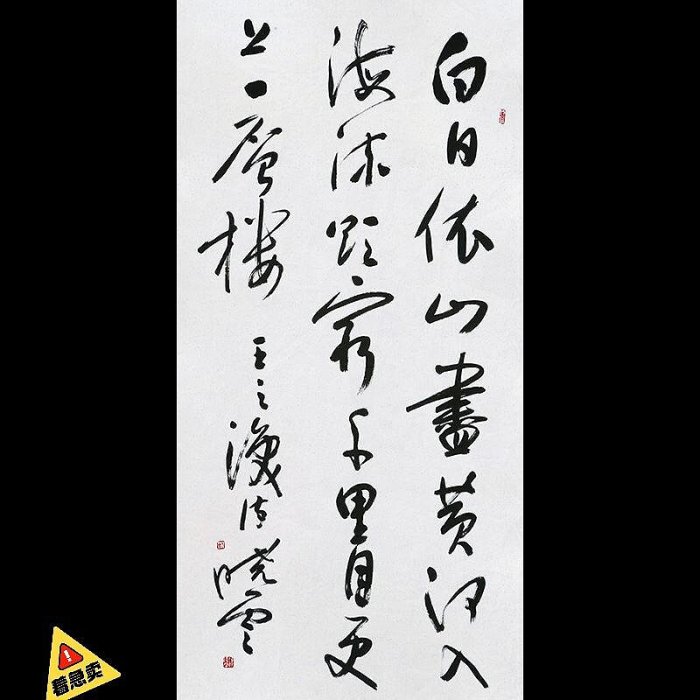 白日依山盡黄河入
海流欲窮千里目更
上一層樓
王之渙诗 晓雲
着急卖